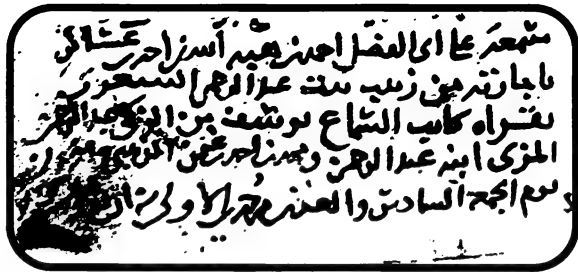 سمعه على أبي الفضل أحمد بن هبة الله بن أحمد بن عساكر
بإجازته من زينب بنت عبد الرحمن الشعري
بقراءة كاتب السماع يوسف بن الزكي عبد الرحمن
المزي ابنه عبد الرحمن ومحمد بن أحمد بن
يوم الجمعة السادس والعشرين جمدى الأولى سنة